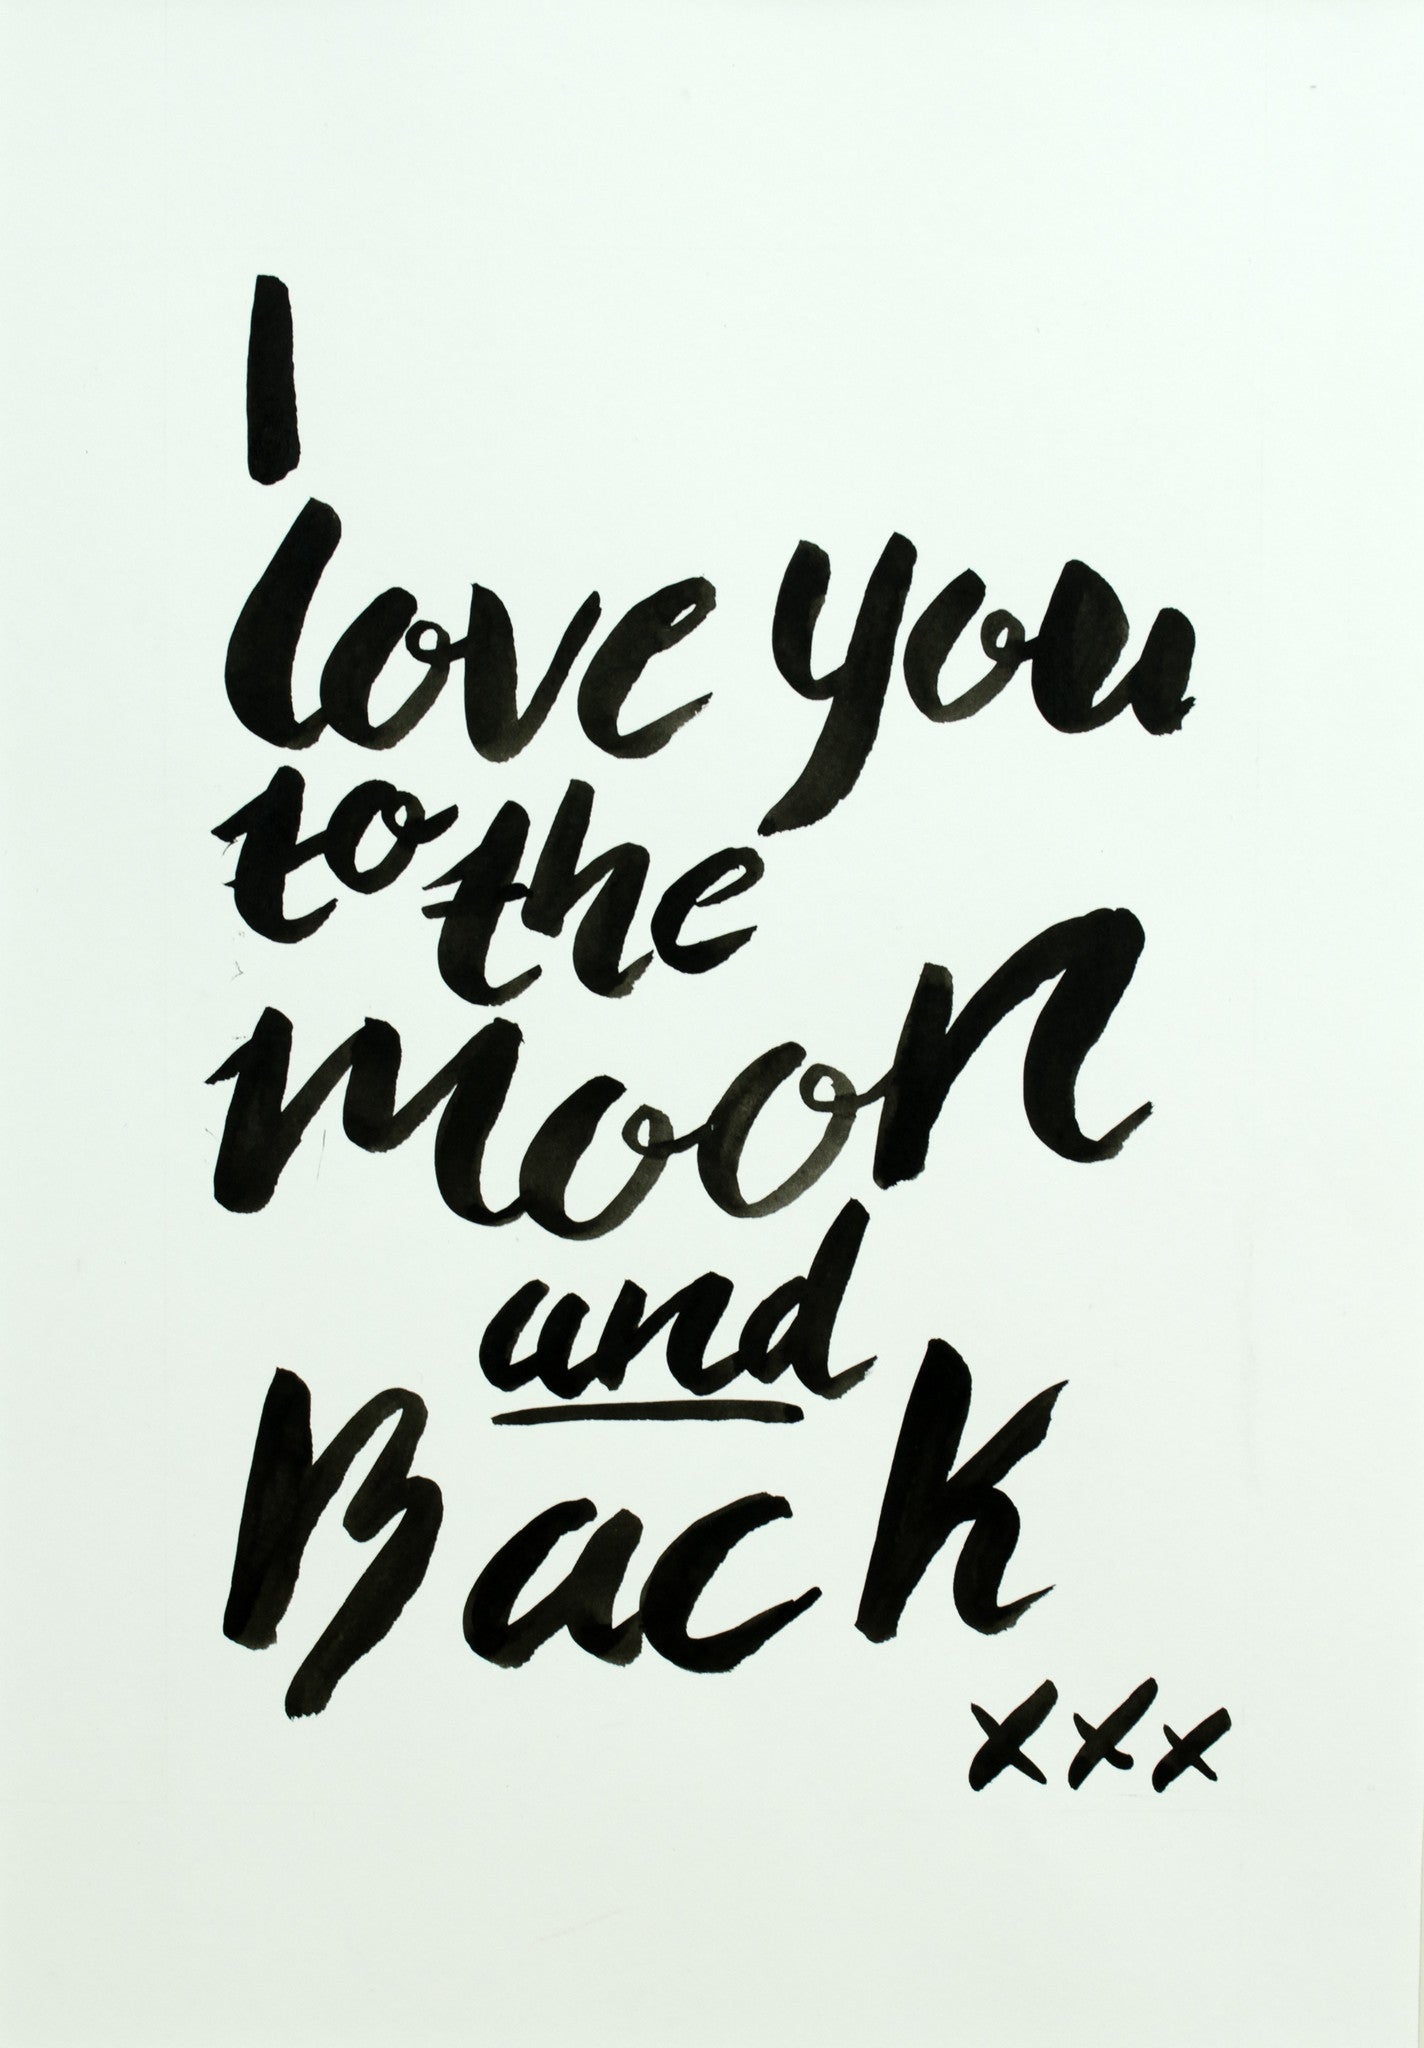 I
love you
to the
moon
and
Back
xxx